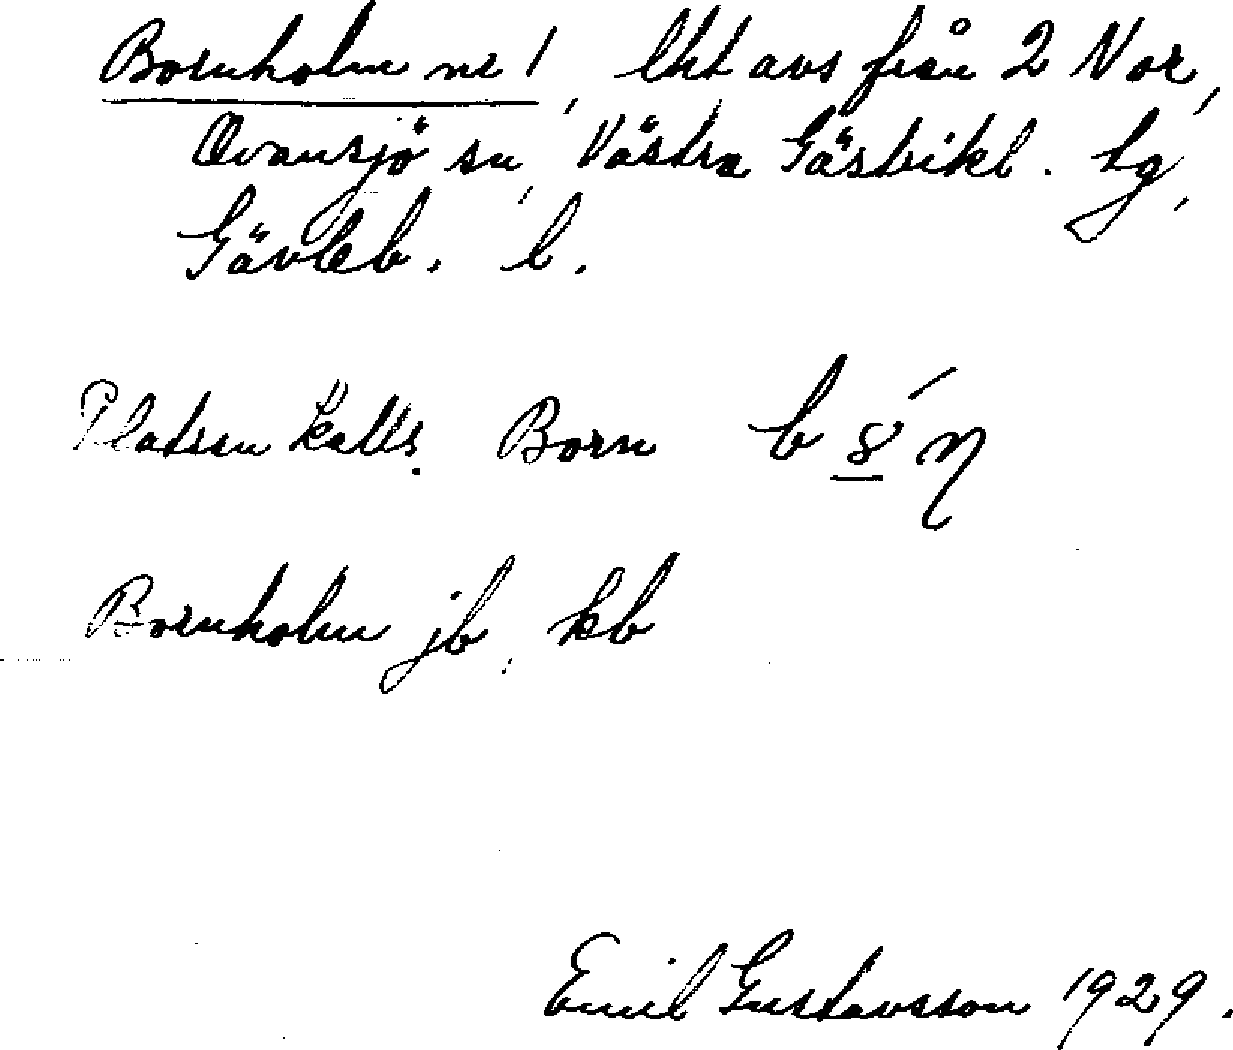 Bornholm nr 1, lht avs från 2 Nor,
Ovansjö sn, Västra Gästrikl. tg,
Gävleb. l.
Platsen kalls. Born
Bornholm jb, kb
Emil Gustavsson 1929.